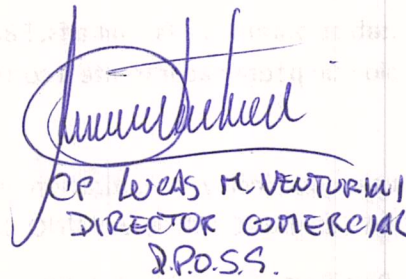 CP LUCAS M. VENTURINI
DIRECTOR COMERCIAL
D.P.O.S.S.